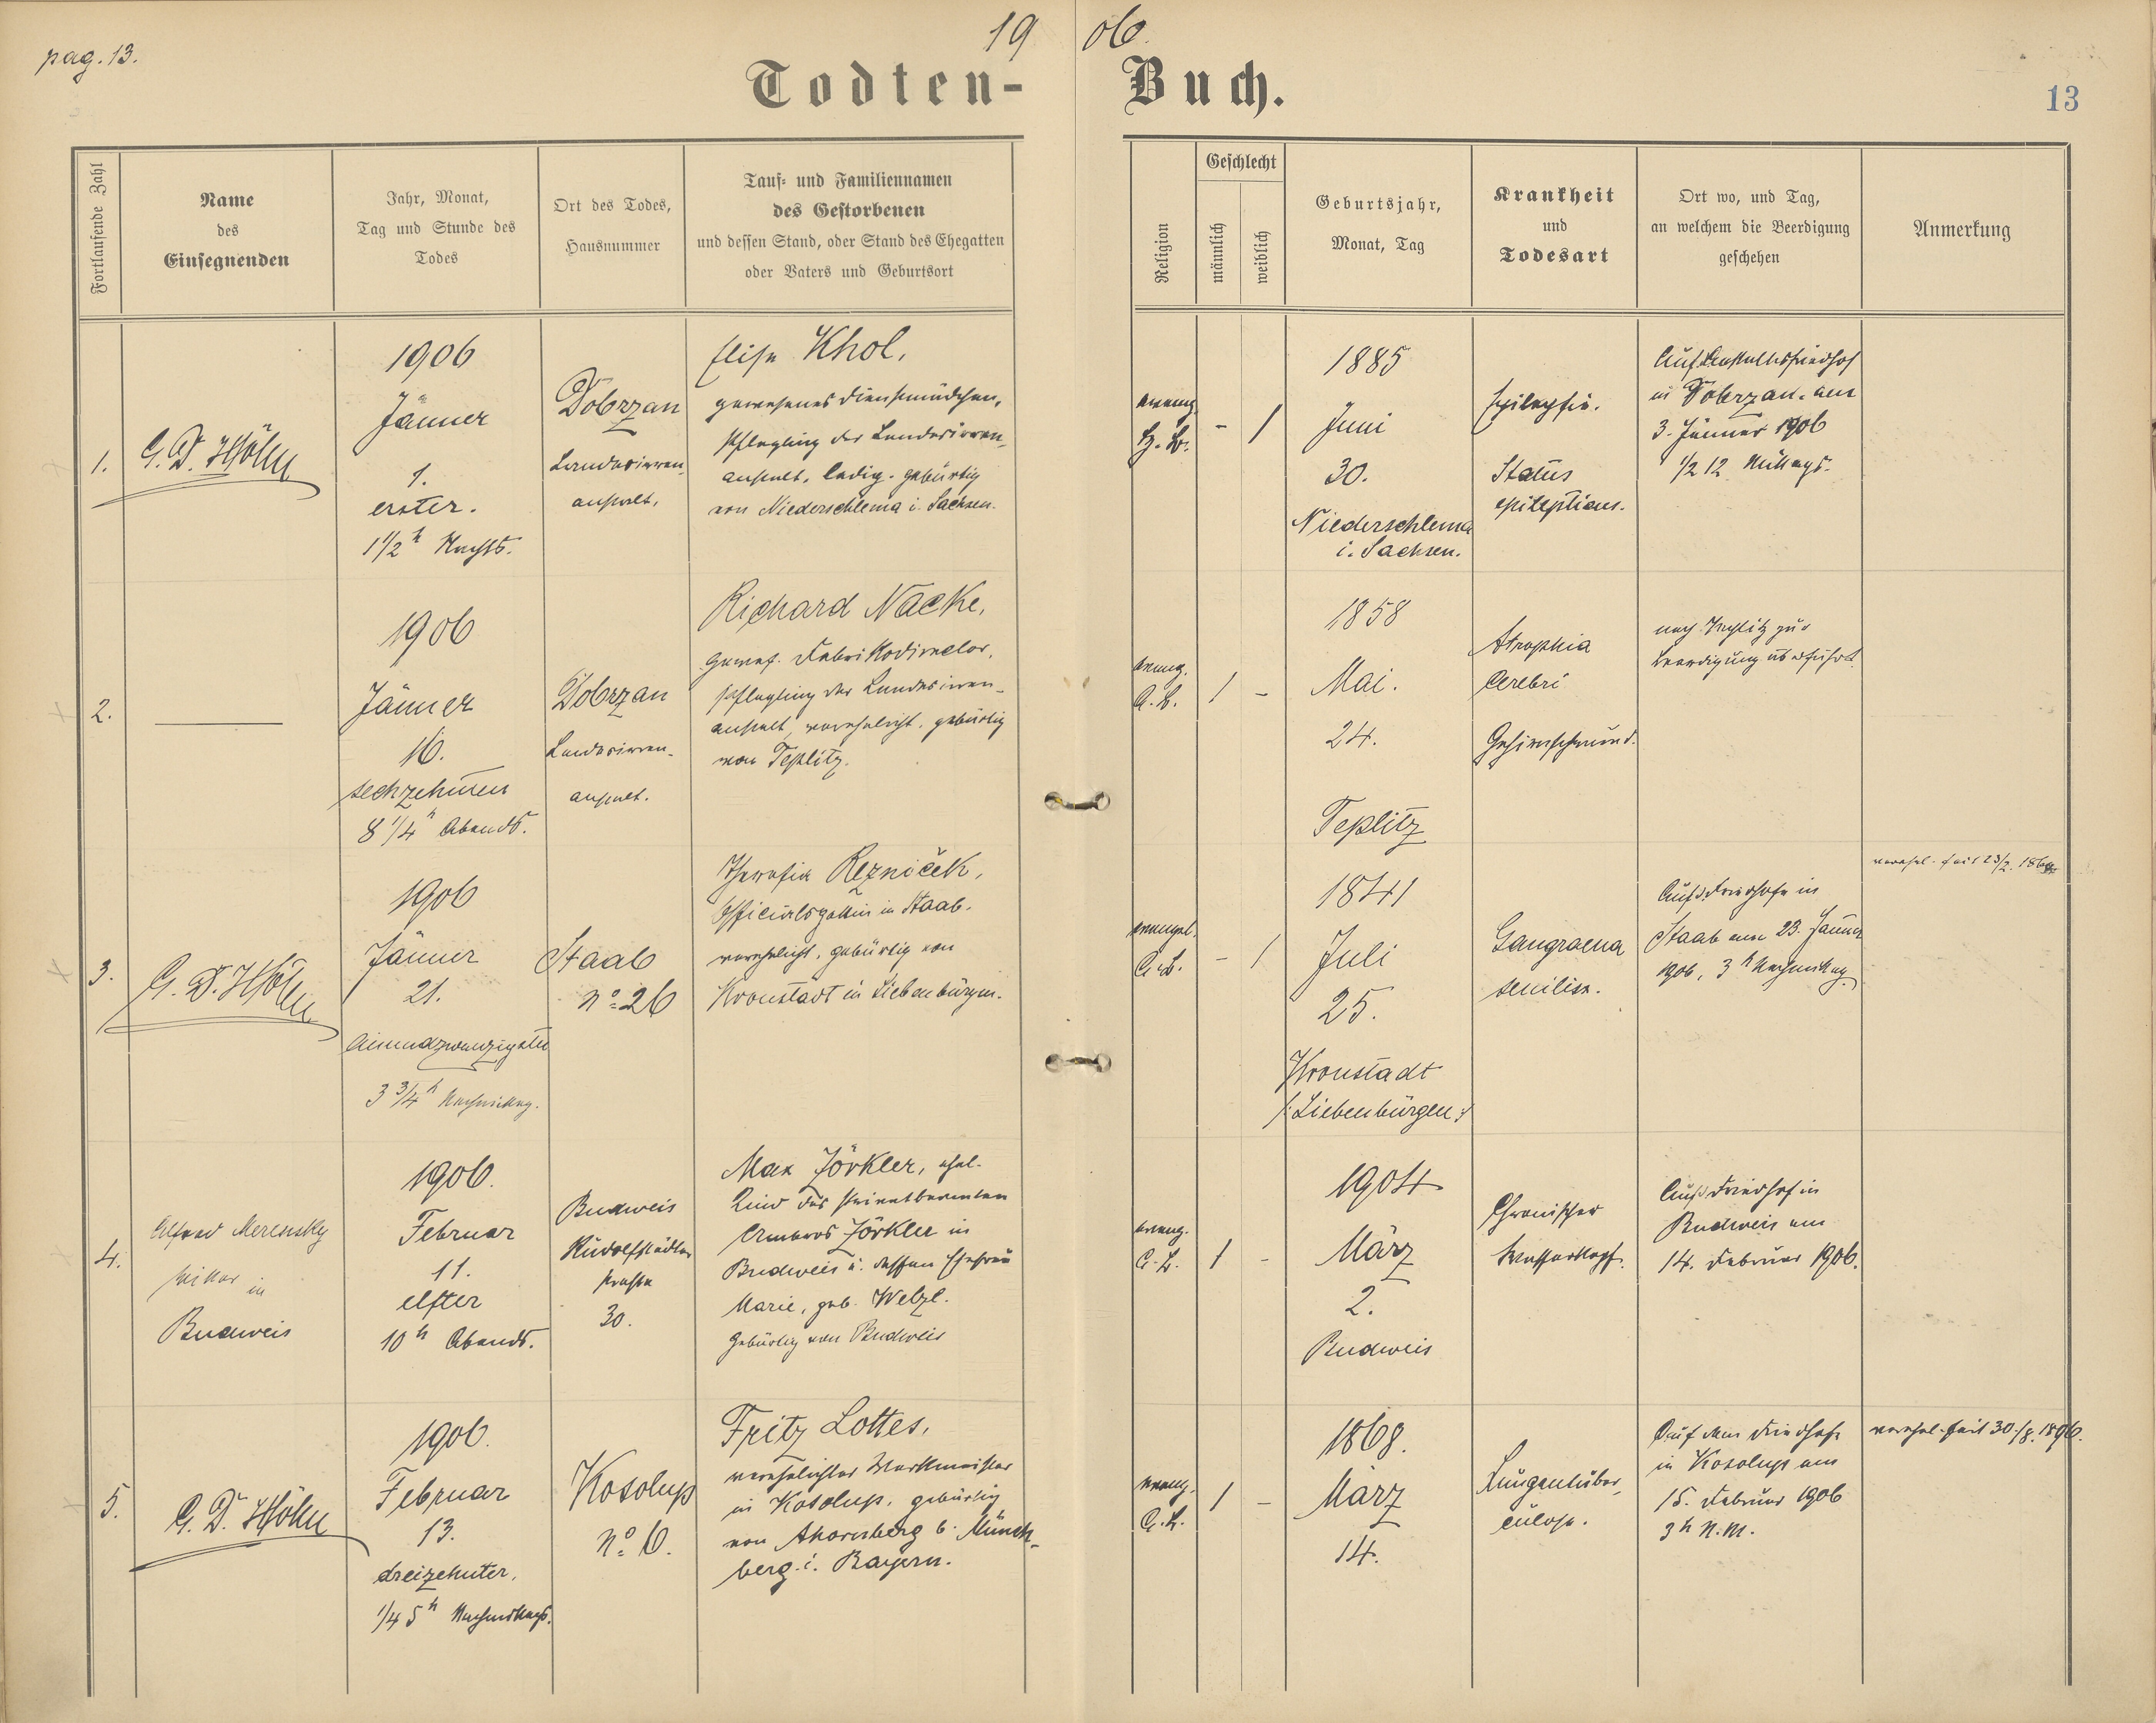 pag. 13.
1906.
Todten-Buch.
13
Fortlaufende Zahl
Name
des
Einsegnenden
Jahr, Monat,
Tag und Stunde des
Todes
Ort des Todes,
Hausnummer
Tauf- und Familiennamen
des Gestorbenen
und dessen Stand, oder Stand des Ehegatten
oder Vaters und Geburtsort
Religion
Geschlecht
männlich
weiblich
Geburtsjahr,
Monat, Tag
Krankheit
und
Todesart
Ort wo, und Tag,
an welchem die Beerdigung
geschehen
Anmerkung
1.
G. D. Höhn
1906
Jänner
1.
erster.
1 1/2 h Nachts.
Dobrzan
Landesirren-
anstalt.
Elise Khol,
gewesenes Dienstmädchen,
Pflegling der Landesirren-
anstalt, ledig. gebürtig
von Niederschlema i. Sachsen.
evang.
- 1
1885
Juni
30.
Niederschlema
i. Sachsen.
Epilepsie.
Status
epilepticus.
Auf Anstaltsfriedhof
in Dobrzan. am
3. Jänner 1906
1/2 12 Mittags.
2.
1906
Jänner
16.
sechzehnten
8 1/4 h Abends.
Dobrzan
Landesirren-
anstalt.
Richard Nacke,
gewes. Fabriksdirector,
Pflegling der Landesirren-
anstalt, verehelicht. gebürtig
von Teplitz.
evang.
A. B.
1 -
1858
Mai.
24.
Teplitz
Atrophia
Cerebri
Gehirnschwund.
nach Teplitz zur
Beerdigung überführt.
3.
G. D. Höhn
1906
Jänner
21.
Einundzwanzigster
3 3/4 h Nachmittag.
Staab
No 26
Theresia Rezniček,
Officialsgattin in Staab.
verehelicht, gebürtig von
Kronstadt in Siebenbürgen.
evangel.
A. B.
- 1
1841
Juli
25.
Kronstadt
/: Siebenbürgen :/
Gangraena
senilis.
Auf d. Friedhofe in
Staab am 23. Jänner
1906, 3 h Nachmittag.
verehel. seit 23/2.
4.
Alfred Merensky
Vikar in
Budweis
1906.
Februar
11.
elfter
10 h Abends.
Budweis
Rudolfstädter
strasse
30.
Max Jörkler, ehel.
Kind des Privatbeamten
Ambros Jörkler in
Budweis u. dessen Ehefrau
Marie, geb. Welzl.
Gebürtig von Budweis
evang.
A. B.
1 -
1904
März
2.
Budweis
Chronischer
Wasserkopf.
Auf d. Friedhof in
Budweis am
14. Februar 1906.
5.
G. D. Höhn
1906.
Februar
13.
dreizehnter.
1/4 5 h Nachmittags.
Kosolup
No 6.
Fritz Lottes,
verehelichter Werkmeister
in Kosolup, gebürtig
von Ahornsberg b. Münch-
berg i. Bayern.
evang.
A. B.
1 -
1868.
März
14.
Lungentuber-
culose.
Auf dem Friedhofe
in Kosolup am
15. Februar 1906
3 h N.M.
verehel. seit 30./8. 1896.